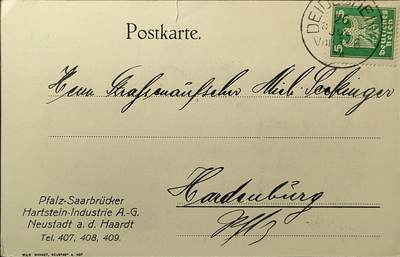 Postkarte.
5 5
Deutsches Reich
Herrn Straßenaufseher Mich. Seckinger
Hardenburg
Pfalz
Pfalz-Saarbrücker
Hartstein-Industrie A.-G.
Neustadt a. d. Haardt
Tel. 407, 408, 409.